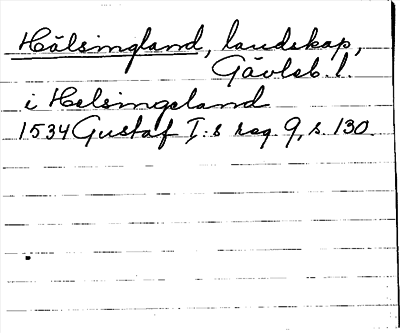 Hälsingland, landskap,
Gävleb. l.
i Helsingeland
1534 Gustaf I:s reg. 9, s. 130.